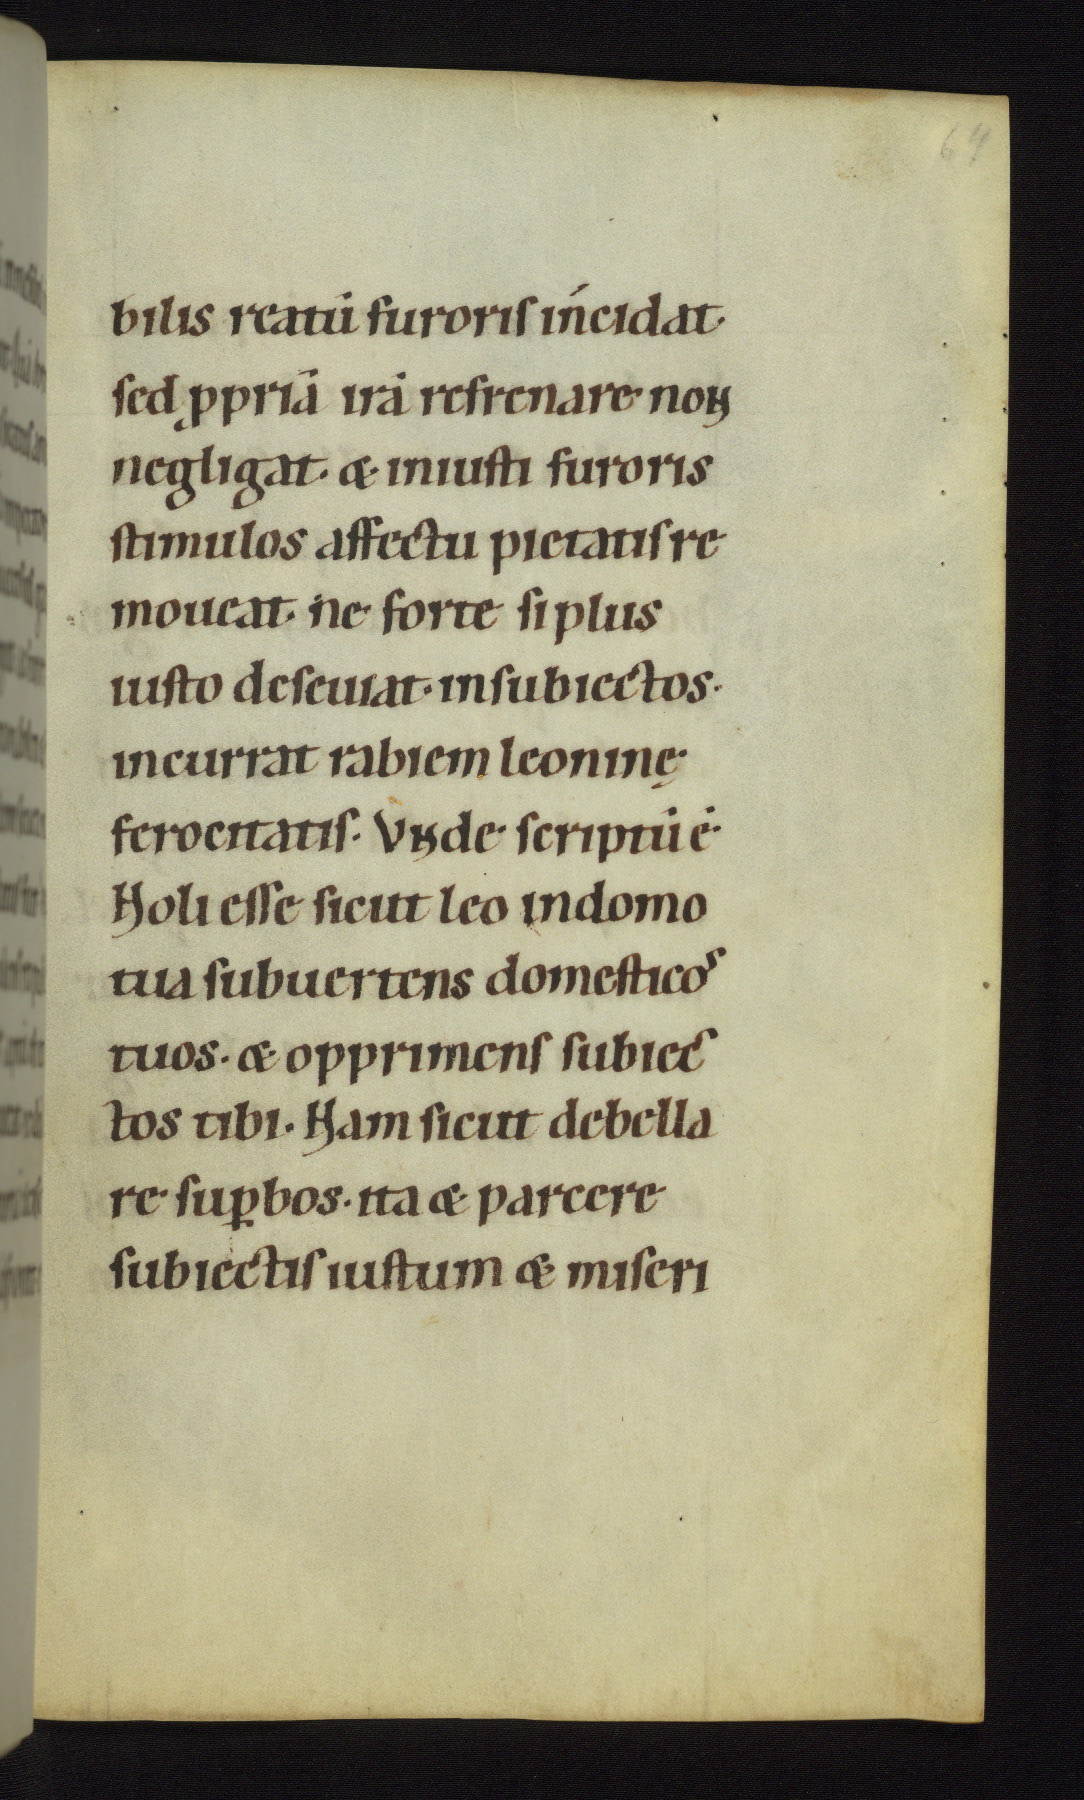 64
bilis reatū furoriſ incidat·
ſed ꝓpriā irā refrenare non
negligat· & iniuſti furoris
ſtimulos affectu pietatiſ re
moueat· ne forte ſi plus
iuſto deſeuiat· in ſubiectos·
incurrat rabiem leoninę
ferocitatiſ· Vnde ſcriptū ē·
Noli eſſe ſicut leo in domo
tua ſubuertens domeſticoſ
tuos· & opprimenſ ſubiec
tos tibi· Nam ſicut debella
re ſuꝑbos· ita & parcere
ſubiectiſ iuſtum & miſeri